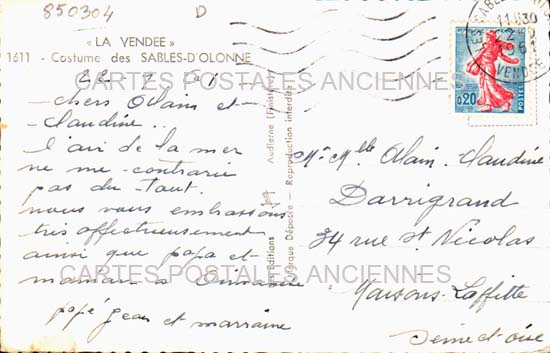 850304
D
« LA VENDEE »
1611 - Costume des SABLES-D'OLONNE
chers Alain et
Claudine..
l'air de la mer
ne me contrarie
pas du tout.
nous vous embrassons
très affectueusement
ainsi que papa et
maman à Dimanche
papé Jean et marraine
Audierne (Finistère)
Les Editions
Jack
Marque Déposée - Reproduction interdite
11H30
22
1961
VENDEE
0,20
POSTES
Mr Mlle Alain. Claudine
Darrigrand
34 rue St. Nicolas
Maisons-Laffitte
Seine et oise
CARTES POSTALES ANCIENNES
CARTES POSTALES ANCIENNES